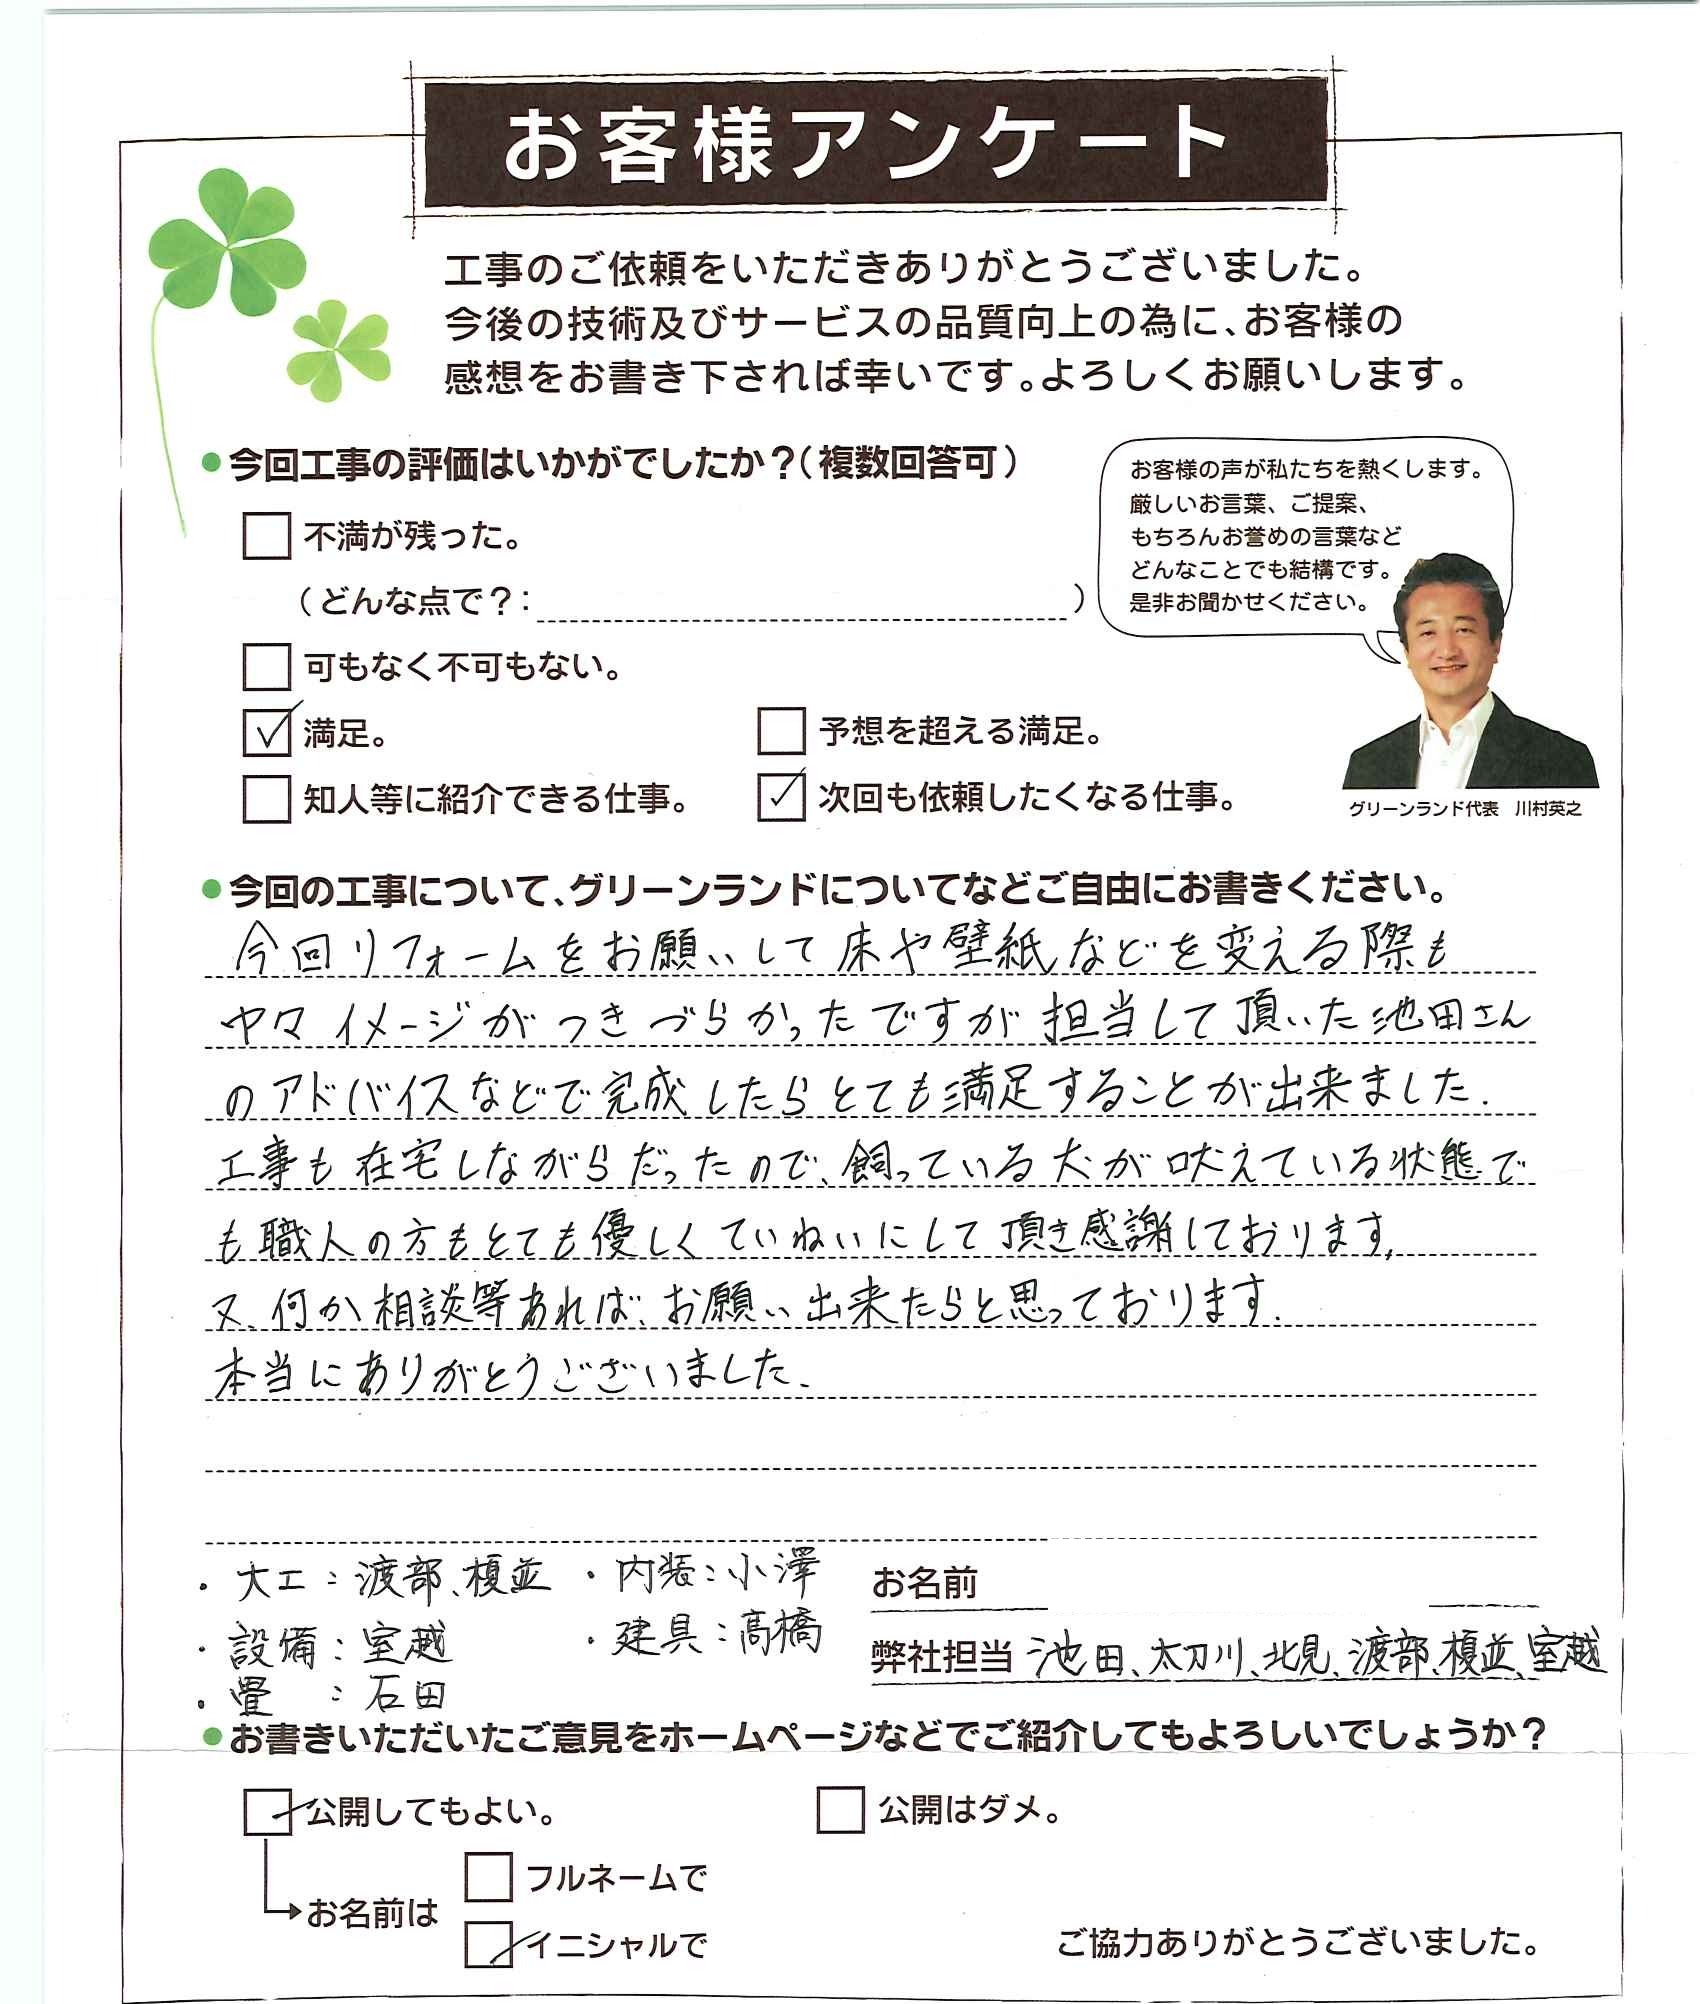 お客様アンケート
工事のご依頼をいただきありがとうございました。
今後の技術及びサービスの品質向上の為に、お客様の
感想をお書き下されば幸いです。よろしくお願いします。
●今回工事の評価はいかがでしたか?(複数回答可)
不満が残った。
(どんな点で?: )
可もなく不可もない。
満足。
予想を超える満足。
知人等に紹介できる仕事。
次回も依頼したくなる仕事。
お客様の声が私たちを熱くします。
厳しいお言葉、ご提案、
もちろんお誉めの言葉など
どんなことでも結構です。
是非お聞かせください。
グリーンランド代表 川村英之
●今回の工事について、グリーンランドについてなどご自由にお書きください。
今回リフォームをお願いして床や壁紙などを変える際も
ヤマイメージがつきづらかったですが担当して頂いた池田さん
のアドバイスなどで完成したらとても満足することが出来ました.
工事も在宅しながらだったので、飼っている犬が吠えている状態で
も職人の方もとても優しくていねいにして頂き感謝しております,
又、何か相談等あれば、お願い出来たらと思っております.
本当にありがとうございました.
・大工:渡部、榎並
・内装:小澤
・設備:室越
・建具:髙橋
・畳 :石田
お名前
弊社担当 池田、太刀川、北見、渡部、榎並、室越
●お書きいただいたご意見をホームページなどでご紹介してもよろしいでしょうか?
公開してもよい。
公開はダメ。
お名前は
フルネームで
イニシャルで
ご協力ありがとうございました。